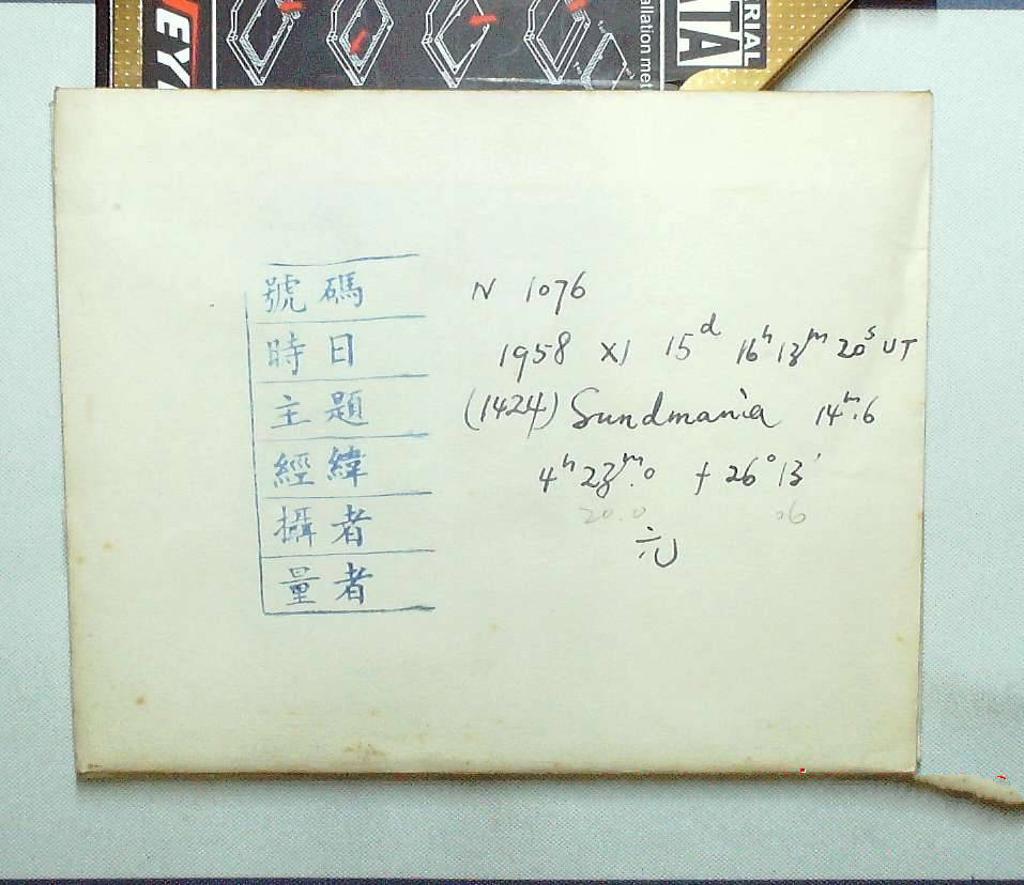 EY
llation met
TA
RIAL
號碼 N 1076
時日 1958 XI 15d 16h 13m 20s UT
主題 (1424) Sundmania 14m.6
經緯 4h 23m.0 + 26° 13'
20.0 06
攝者 元
量者